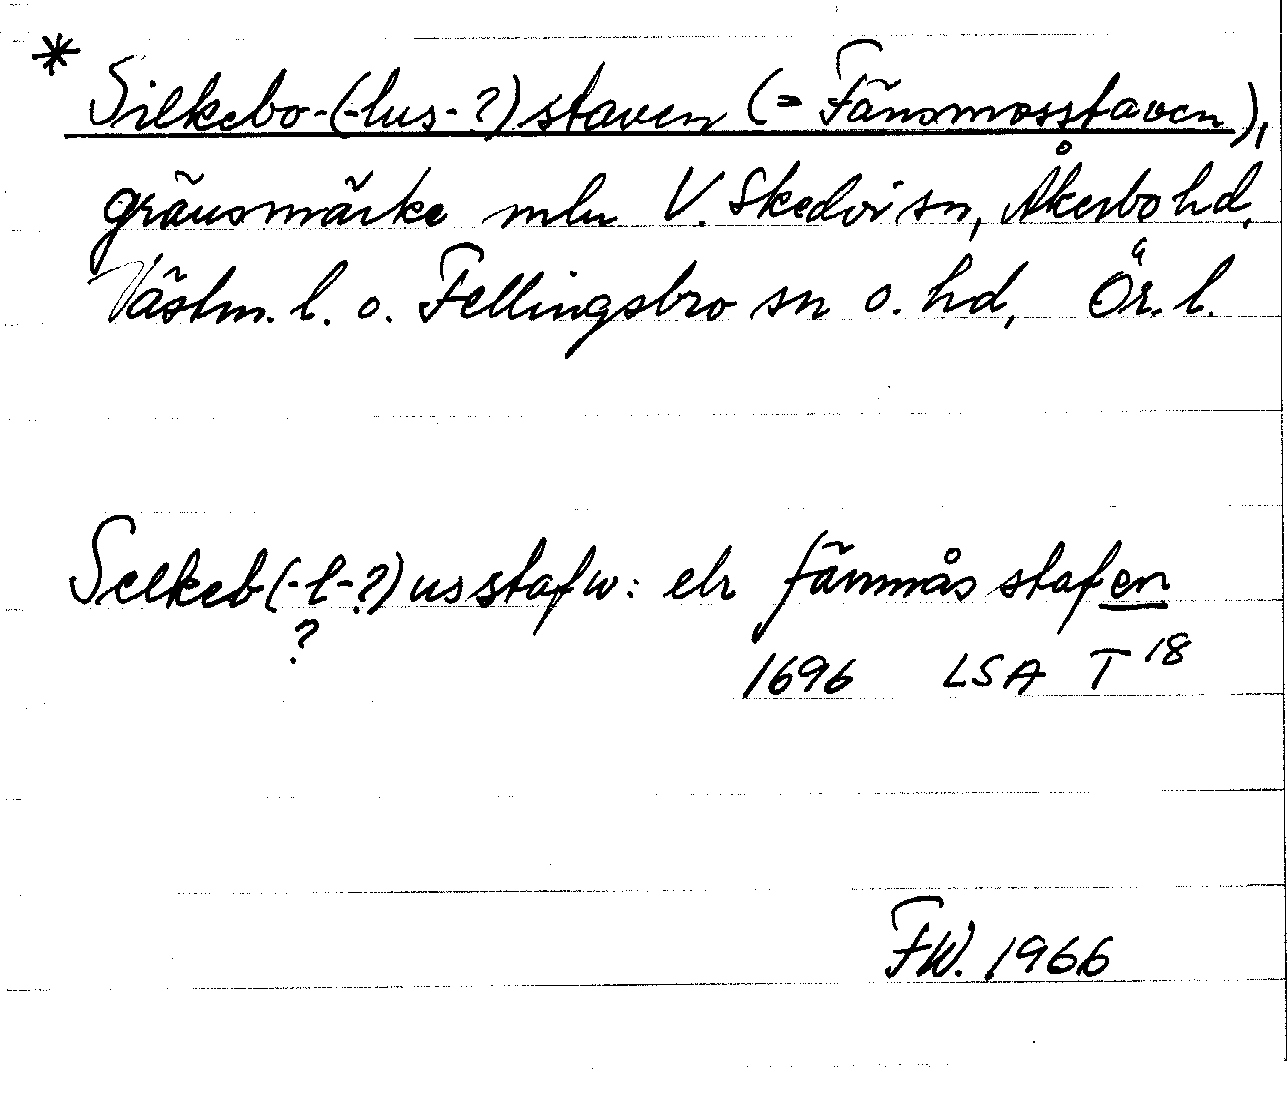 * Silkebo-(-lus-?)staven (= Fänsmosstaven),
gränsmärke mln V. Skedvi sn, Åkerbo hd,
Västm. l. o. Fellingsbro sn o. hd, Ör. l.
Selkeb(-l-?)usstafw: elr fämmås stafen
?
1696 LSA T 18
FW. 1966